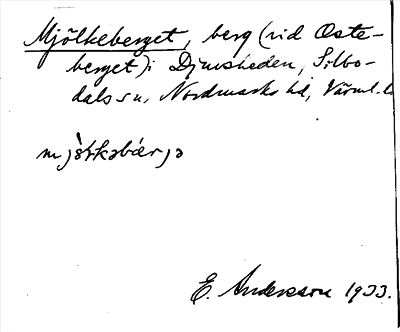 Mjölkeberget, berg (vid Oste-
berget) i Djursheden, Silbo-
dals sn, Nordmarks hd, Värml. l.
mjö̀lkəbærjə
E. Andersson 1933.